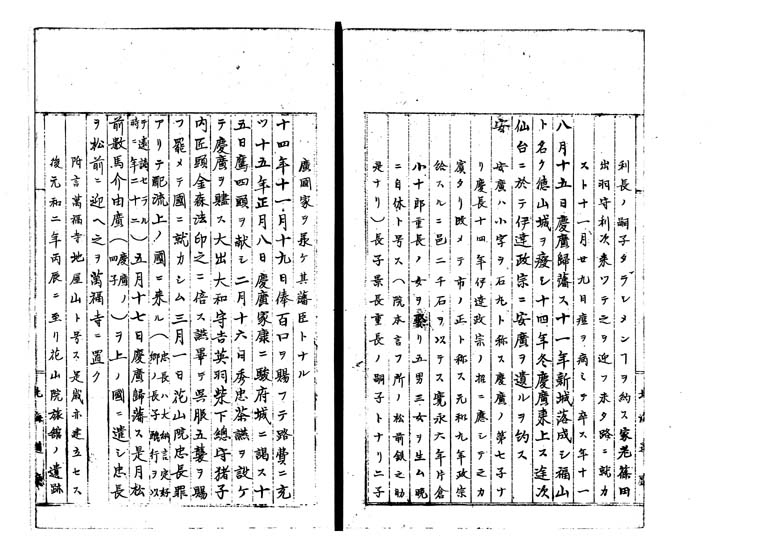 利長ノ嗣子タラシメンヿヲ約ス家老篠田
出羽守利次来ツテ之ヲ迎フ未タ路ニ就カ
スト十一月廿九日痘ヲ病ミテ卒ス年十一
八月十五日慶廣歸藩ス十一年新城落成シ福山
ト名ク徳山城ヲ廢シ十四年冬慶廣東上ス途次
仙台ニ於テ伊達政宗ニ安廣ヲ遺ルヲ約ス
安 安廣ハ小字ヲ石丸ト称ス慶廣ノ第七子ナ
リ慶長十四年伊達政宗ノ招ニ應シテ之カ
賓タリ改メテ市ノ正ト称ス元和九年政宗
給スルニ邑二千石ヲ以テス寛永六年片倉
小十郎重長ノ女ヲ娶リ五男三女ヲ生ム晩
ニ自休ト号ス(院本言フ所ノ松前鉄之助
是ナリ)長子景長重長ノ嗣子トナリ二子
廣國家ヲ承ケ其藩臣トナル
十四年十一月十九日俸百口ヲ賜フテ路費ニ充
ツ十五年正月八日慶廣家康ニ駿府城ニ謁ス十
五日鷹四頭ヲ献シ二月十六日秀忠茶讌ヲ設ケ
テ慶廣ヲ饗ス大出大和守吉英羽柴下総守猪子
内匠頭金森法印之ニ倍ス讌畢テ呉服五襲ヲ賜
フ罷メテ國ニ就カシム三月一日花山院忠長罪
アリテ配流上ノ國ニ来ル(忠長ハ大納言定好
卿ノ長子酷行ヲ以
テ遠謫セラル
時ニ年二十二)五月十七日慶廣歸藩ス是月松
前数馬介由廣(慶廣ノ
四子)ヲ上ノ國ニ遣シ忠長
ヲ松前ニ迎ヘ之ヲ萬福寺ニ置ク
附言萬福寺地屋山ト号ス是歳亦建立セス
後元和二年丙辰ニ至リ花山院旅館ノ遺跡